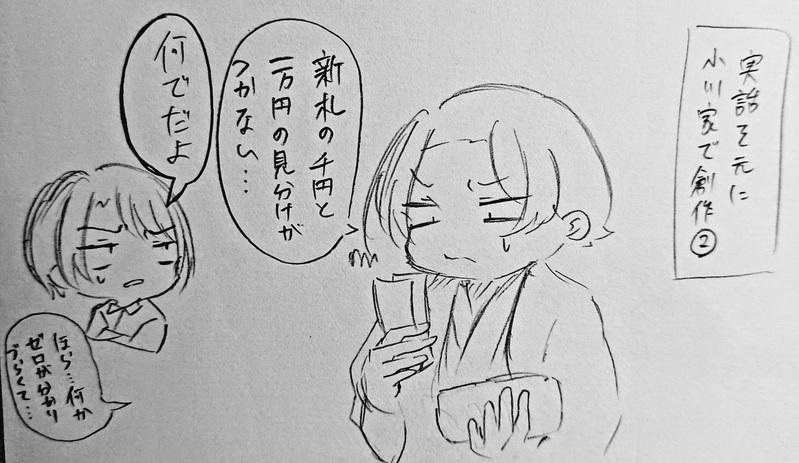 実話を元に
小川家で創作②
新札の千円と
一万円の見分けが
つかない…
何でだよ
ほら…何か
ゼロが分かり
づらくて…